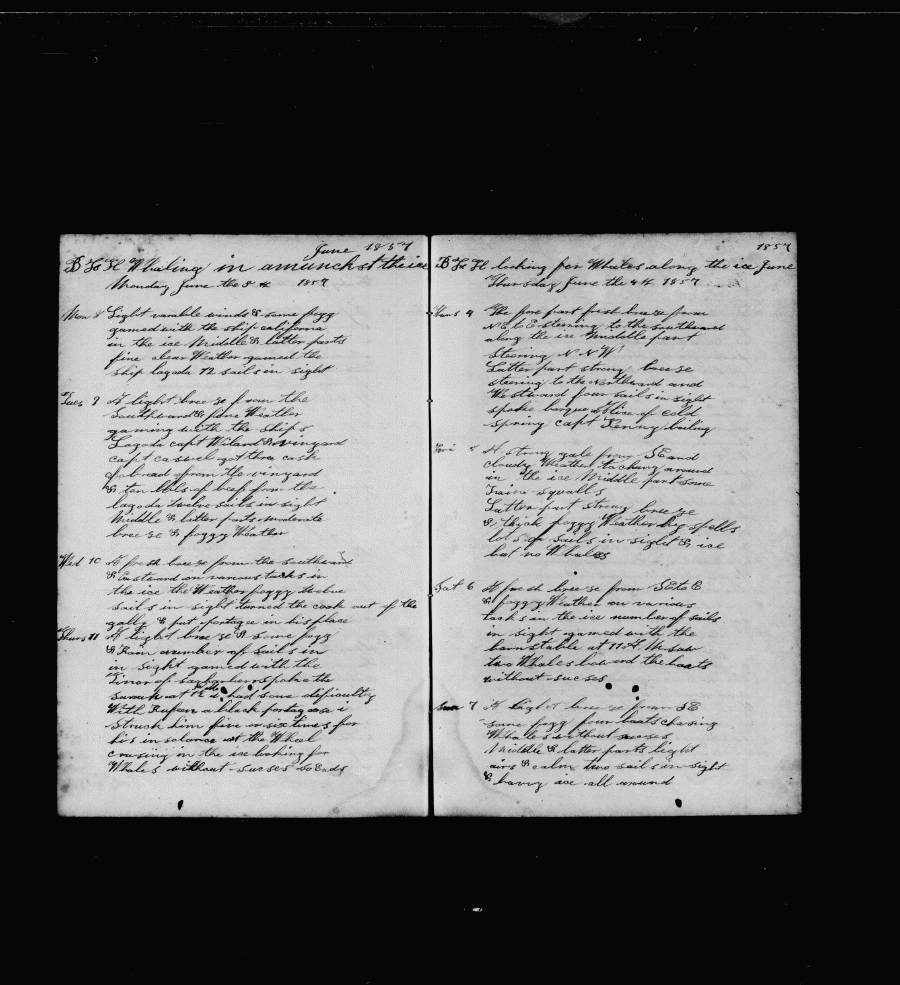 June 1857
Whaling in amunckst the ice
Monday June the 8th 1857
Mon 8 Light varable winds & some fogg
gamed with the ship california
in the ice Middle & latter parts
fine clear Weather gamed the
ship lagoda 12 sails in sight
Tues 9 A light breeze from the
Southward & fine Weather
gaming with the ships
Lagoda capt Wilard & vinyard
capt caswel got three cask
of bread from the vinyard
& ten bbls of beef from the
lagoda twelve sails in sight
Middle & latter parts moderate
breeze & foggy Weather
Wed 10 A fresh breeze from the southward
& Eastward on various tacks in
the ice the Weather foggy twelve
sails in sight turned the cook out of the
gally & put portagee in his place
Thurs 11 A light breeze & some fogg
& Rain a number of sails in
in sight gamed with the
spoke the
at had some dificulty
With a black portagease i
Struck him five or six times for
his insolance at the Wheel
crusing in the ice looking for
Whales without sucses So Ends
1857
looking for Whales along the ice June
Thursday June the 4th 1857
4 The fore part fresh breeze from
N E b E steering to the southward
along the ice Middle part
Steering N N W
Latter part strong breeze
steering to the Northward and
Westward four sails in sight
spoke barque Slive of cold
spring capt boiling
A strong gale from SE and
cloudy Weather tacking around
in the ice Middle part some
squalls
Latter part strong breeze
& thick foggy Weather by spells
lots of sails in sight & ice
but no Whales
Sat 6 A fresh breeze from SE to E
& foggy Weather on varios
tacks in the ice number of sails
in sight gamed with the
barnstable at 11 A M saw
two Whales lowered the boats
without sucses
Sun 7 A Light breeze from SE
some fogg four boats chasing
Whales without sucses
Middle & latter parts light
airs & calm two sails in sight
& havy ice all around